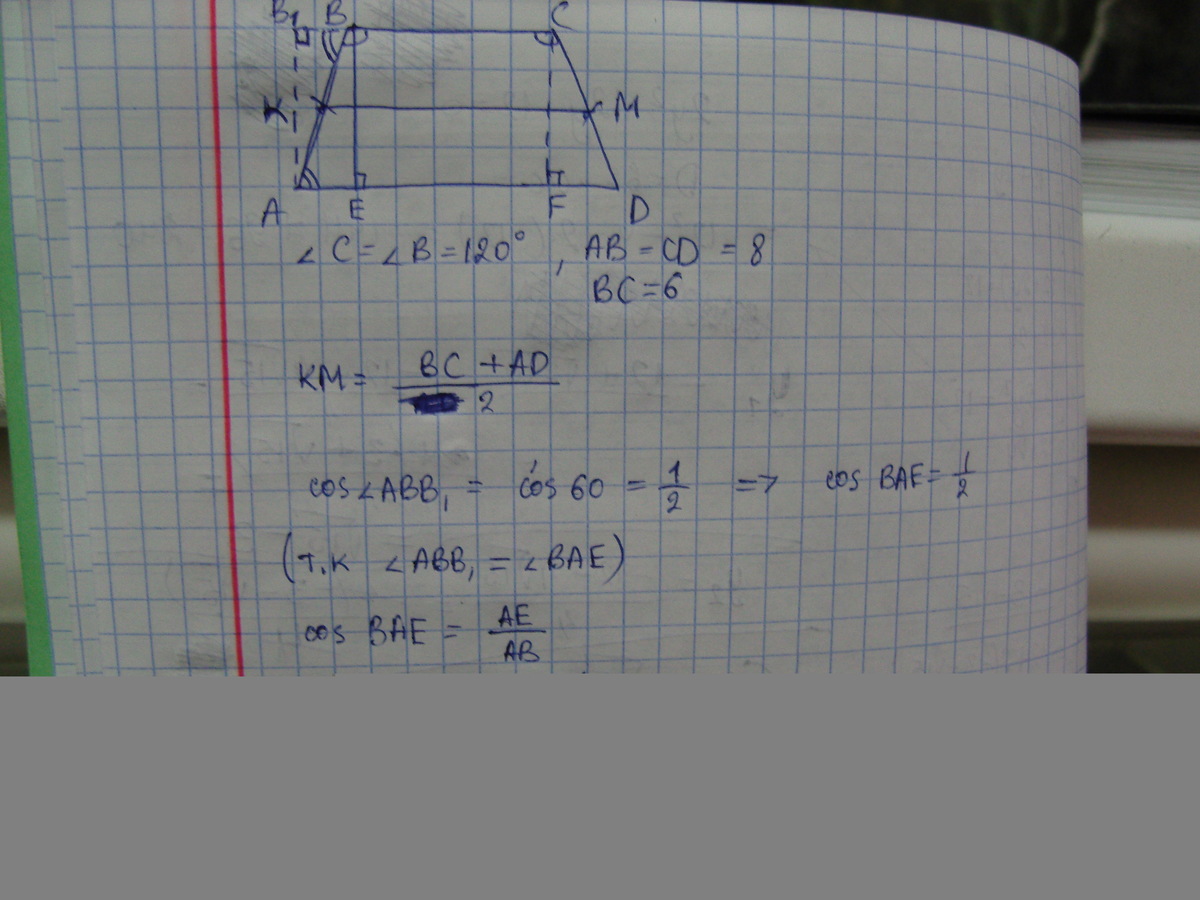 B₁ B C
K M
A E F D
∠ C = ∠ B = 120° , AB = CD = 8
BC = 6
KM = (BC + AD) / 2
cos∠ABB₁ = cos 60 = 1/2 => cos BAE = 1/2
(т.к ∠ABB₁ = ∠BAE)
cos BAE = AE / AB